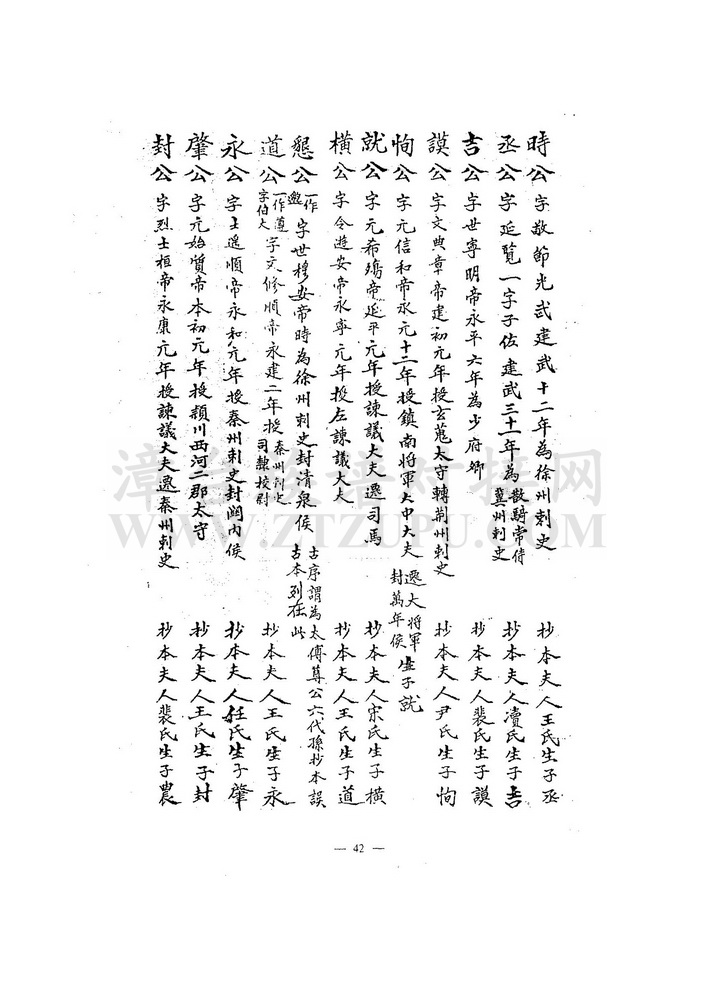 時公 字敬節光武建武十二年為徐州刺史 抄本夫人王氏生子丞
丞公 字延覽一字子佐 建武三十一年為散騎常侍冀州刺史 抄本夫人凟氏生子吉
吉公 字世寧明帝永平六年為少府卿 抄本夫人裴氏生子謨
謨公 字文典章帝建初元年授玄菟太守轉荆州刺史 抄本夫人尹氏生子恂
恂公 字元信和帝永元十二年授鎮南將軍大中大夫 遷大將軍封萬年侯 生子就
就公 字元希殤帝延平元年授諫議大夫遷司馬 抄本夫人宋氏生子橫
橫公 字令遊安帝永寧元年授左諫議大夫 抄本夫人王氏生子道
懇公 一作邈 字世穆安帝時為徐州刺史封清泉侯 古序謂為太傅尊公六代孫抄本誤古本列在此
道公 一作遵字伯大 字文修順帝永建二年授秦州刺史司隸校尉 抄本夫人王氏生子永
永公 字士遙順帝永和元年授秦州刺史封關內侯 抄本夫人任氏生子肇
肇公 字元始質帝本初元年授潁川西河二郡太守 抄本夫人王氏生子封
封公 字烈士桓帝永康元年授諫議大夫遷秦州刺史 抄本夫人裴氏生子農
— 42 —
漳台族譜对接网
WWW.ZTZUPU.COM